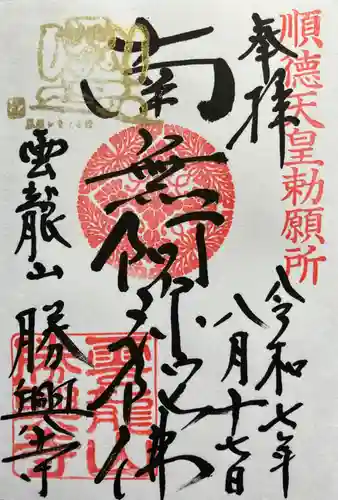 順德天皇勅願所
奉拝
令和七年
八月十七日
南無阿弥陀佛
雲龍山
勝興寺
雲龍山
勝興寺